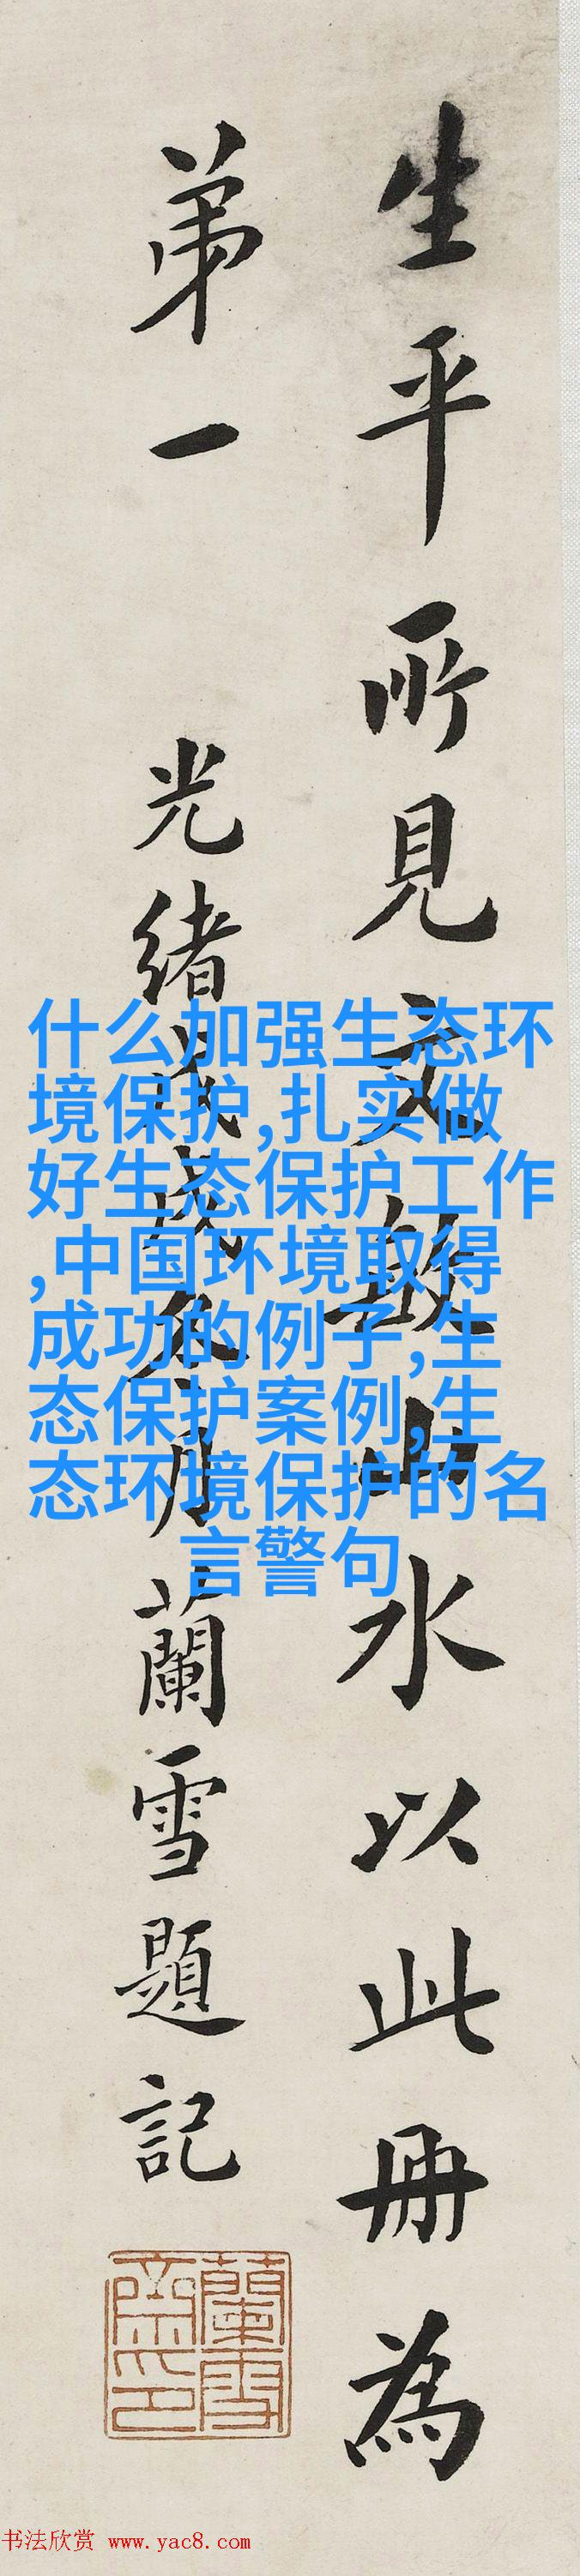 生平所見文敏山水以此冊為
弟一
光緒戊戌冬月蘭雪題記
蘭雪齋印
什么加强生态环
境保护,扎实做
好生态保护工作
,中国环境取得
成功的例子,生
态保护案例,生
态环境保护的名
言警句
书法欣赏 www.yac8.com